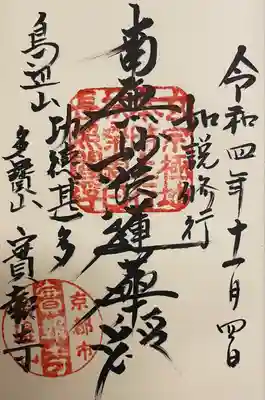 令和四年十一月四日
如説修行
南無妙法蓮華経
功徳甚多
鳥辺山
多寶山 實報寺
京都市
實報寺